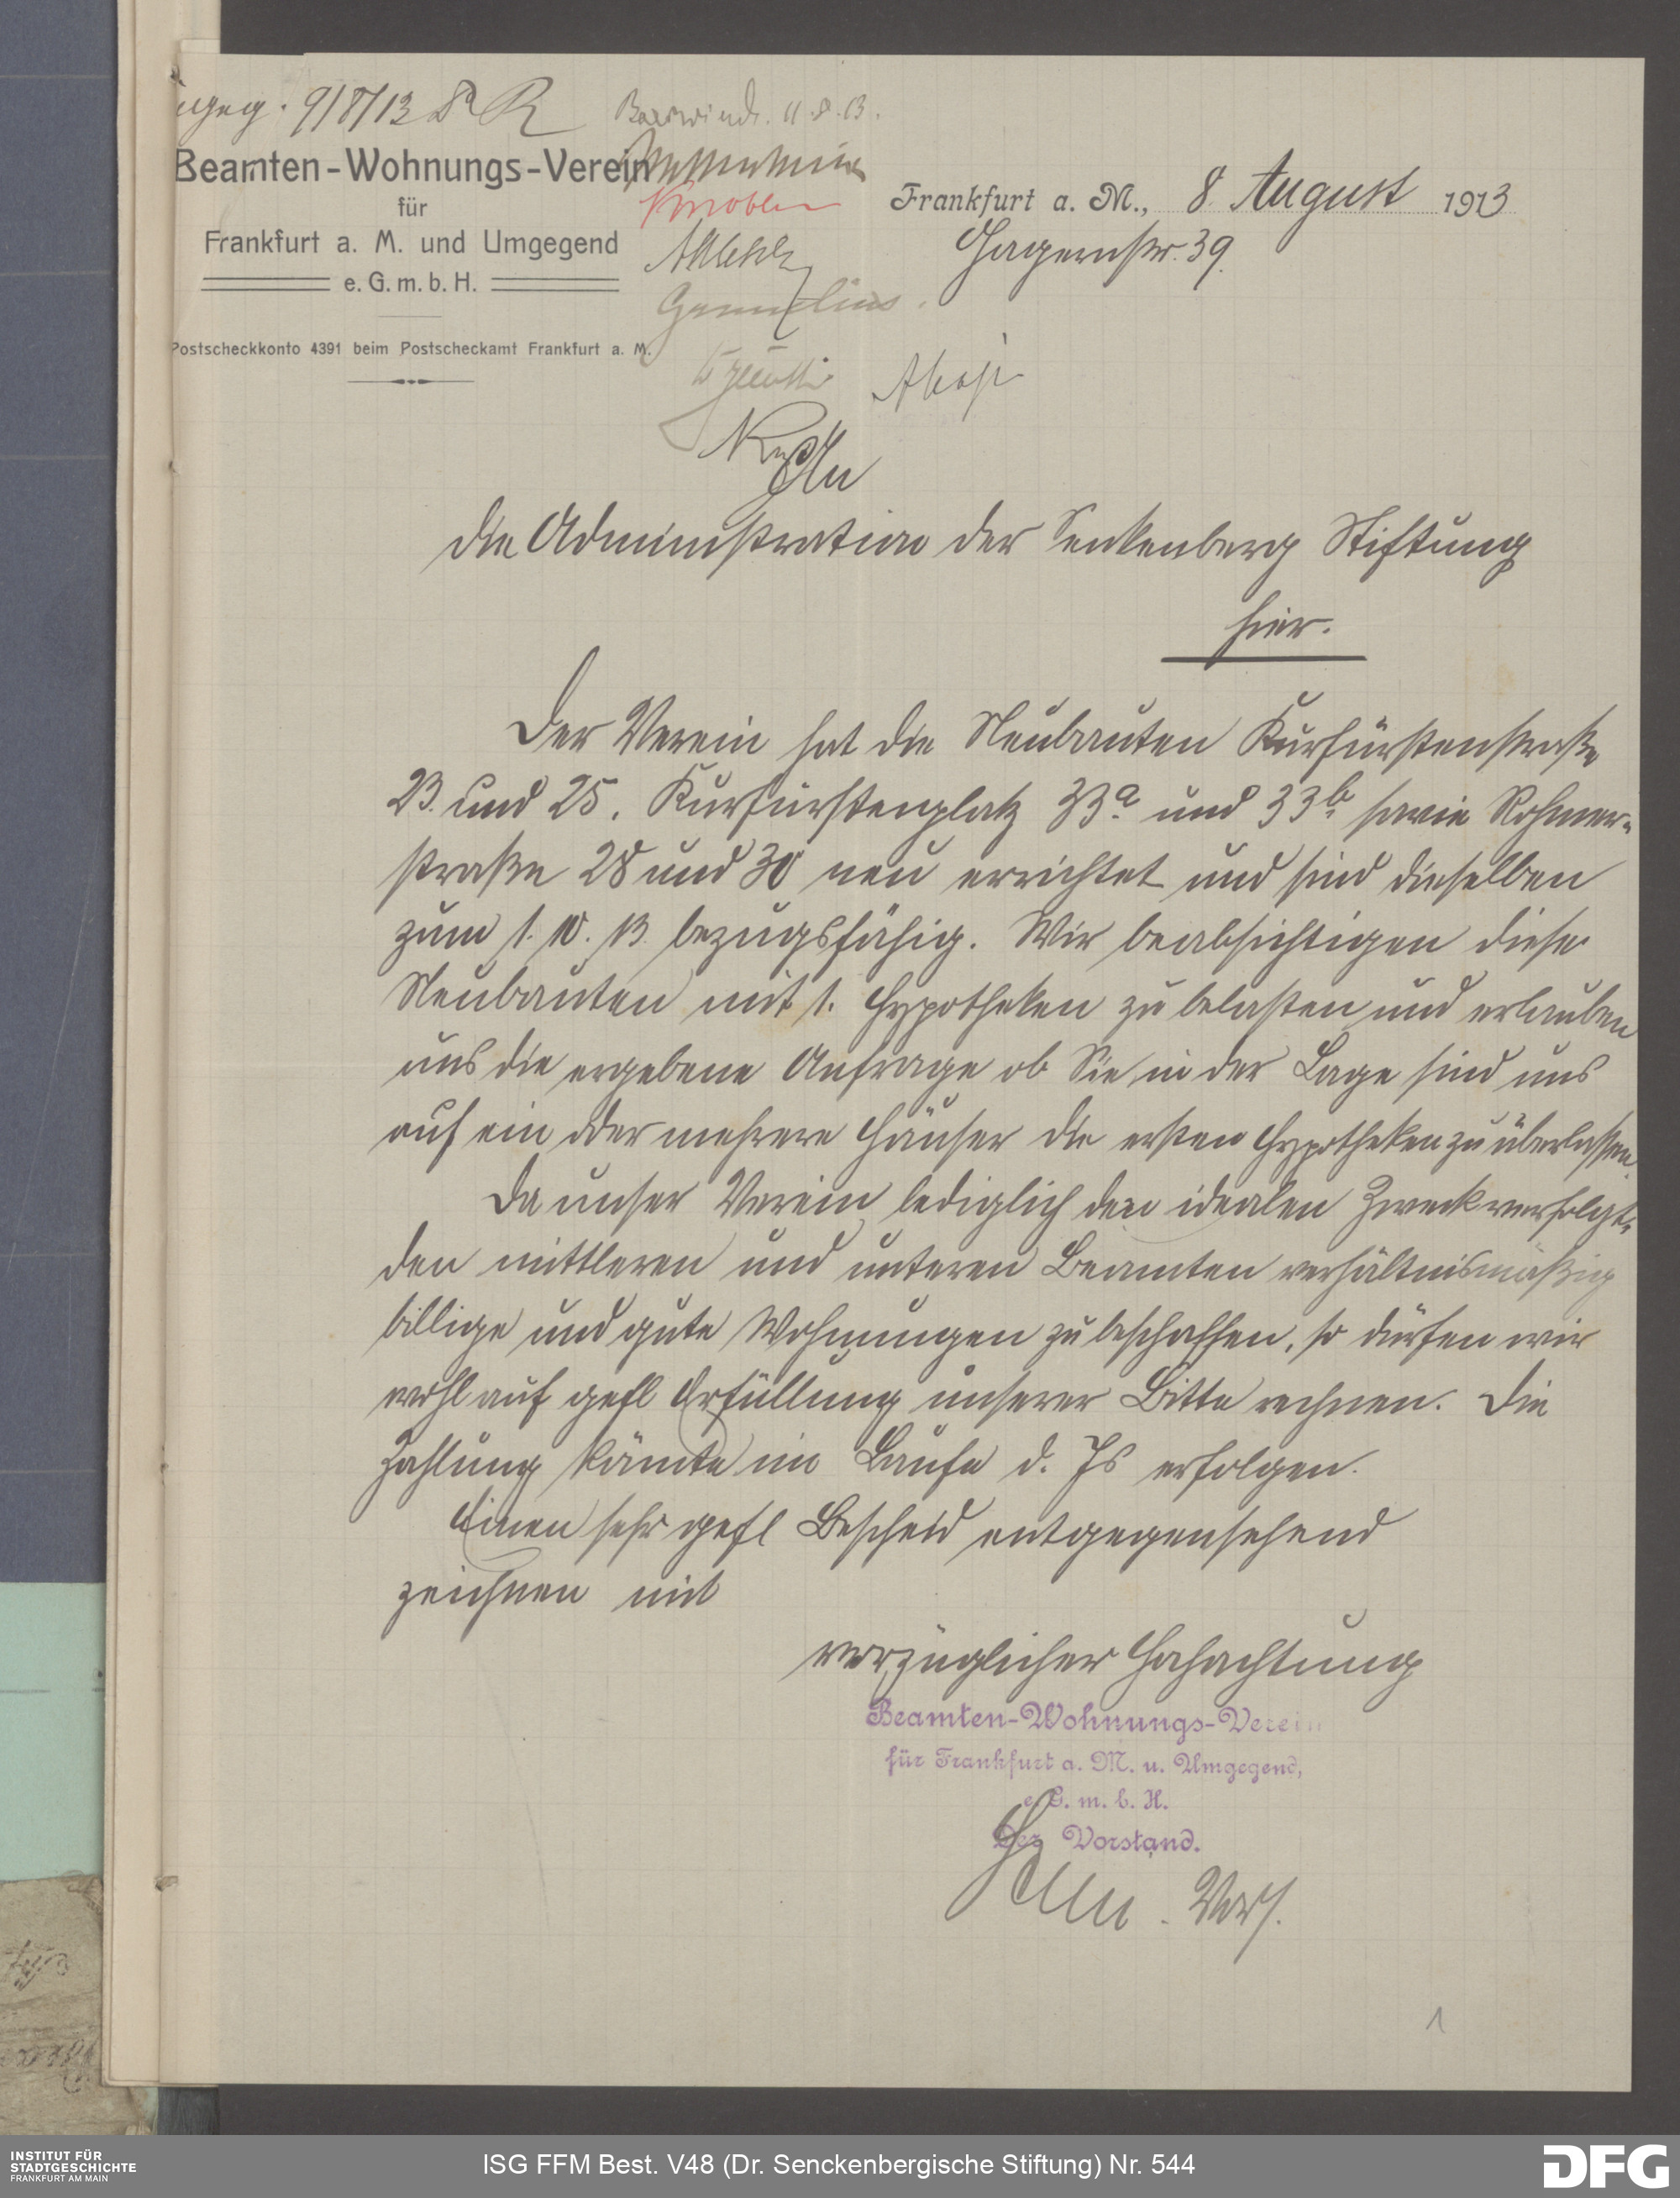 9/8/13
11.8.13.
Beamten-Wohnungs-Verein
für
Frankfurt a. M. und Umgegend
e. G. m. b. H.
Postscheckkonto 4391 beim Postscheckamt Frankfurt a. M.
Knobler
Frankfurt a. M., 8. August 1913
Hagernstr. 39.
An
die Administration der Senkenberg Stiftung
hier.
Der Verein hat die Neubauten Kurfürstenstraße
23. und 25. Kurfürstenplatz 33a. und 33b. sowie Rohmer-
straße 28 und 30 neu errichtet und sind dieselben
zum 1. 10. 13. bezugsfähig. Wir beabsichtigen diese
Neubauten mit 1. Hypotheken zu belasten und erlauben
uns die ergebene Anfrage ob Sie in der Lage sind uns
auf ein oder mehrere Häuser die ersten Hypotheken zu überlassen.
Da unser Verein lediglich den idealen Zweck verfolgt,
den mittleren und unteren Beamten verhältnismäßig
billige und gute Wohnungen zu beschaffen, so dürfen wir
wohl auf gefl Erfüllung unserer Bitte rechnen. Die
Zahlung könnte im Laufe d. Js erfolgen.
Einen sehr gefl Bescheid entgegensehend
zeichnen mit
vorzüglicher Hochachtung
Beamten-Wohnungs-Verein
für Frankfurt a. M. u. Umgegend,
e. G. m. b. H.
Der Vorstand.
Vors.
1
INSTITUT FÜR
STADTGESCHICHTE
FRANKFURT AM MAIN
ISG FFM Best. V48 (Dr. Senckenbergische Stiftung) Nr. 544
DFG